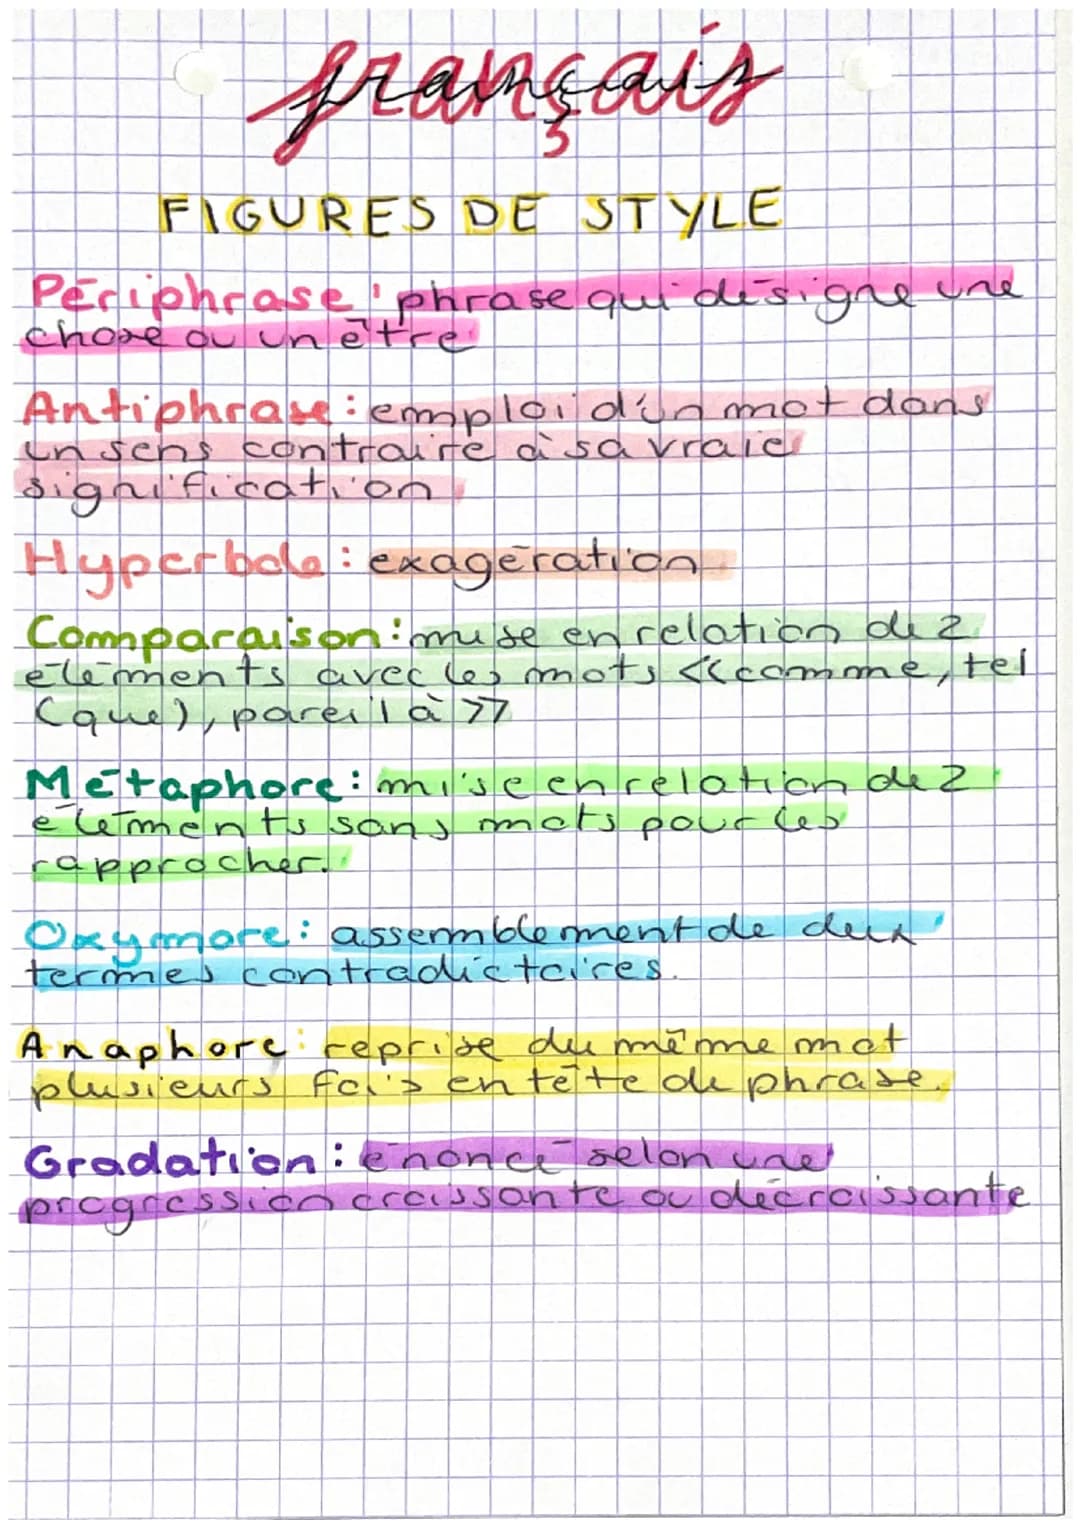 français
FIGURES DE STYLE
Périphrase : phrase qui désigne une
chose ou un être
Antiphrase : emploi d'un mot dans
un sens contraire à sa vraie
signification
Hyperbole : exagération
Comparaison : mise en relation de 2
éléments avec les mots <<comme, tel
(que), pareil à >>
Métaphore : mise en relation de 2
éléments sans mots pour les
rapprocher.
Oxymore : assemblement de deux
termes contradictoires.
Anaphore : reprise du même mot
plusieurs fois en tête de phrase.
Gradation : énoncé selon une
progression croissante ou décroissante